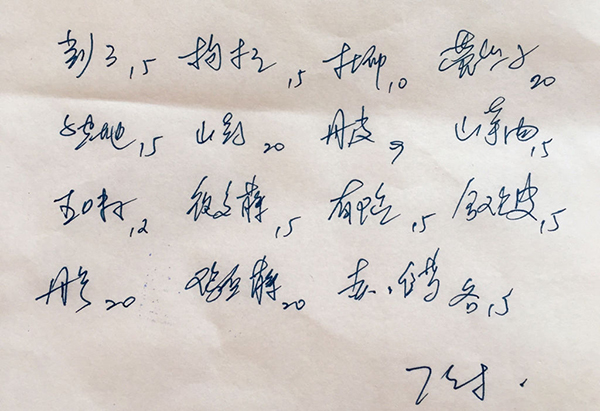 彭子15 枸杞15 杜仲10 黄山子20
生地15 山药20 丹皮9 山萸肉15
五味子12 夜交藤15 15 合欢皮15
丹参20 鸡血藤20 赤、白芍各15
7付.